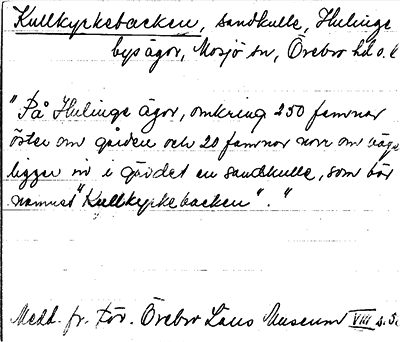 Kullkyrkebacken, sandkulle, Hulinge
bys ägor, Mosjö sn, Örebro hd o. l
"På Hulinge ägor, omkring 250 famnar
öster om gården och 20 famnar norr om väge
ligger i gärdet en sandkulle, som bär
namnet "Kullkyrkebacken"."
Medd. fr. För. Örebro Läns Museum VIII s. 5.